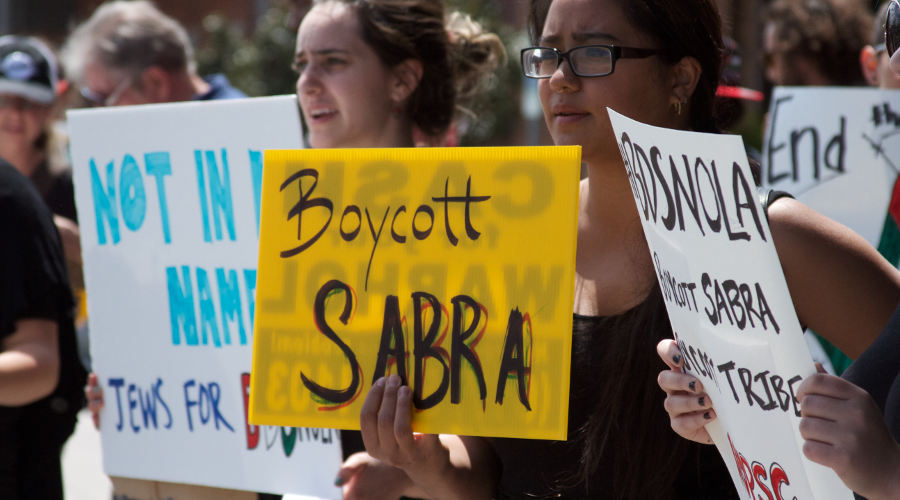 NOT IN
NAME
JEWS FOR
Boycott
SABRA
End
BDSNOLA
Boycott SABRA
TRIBE
PSC